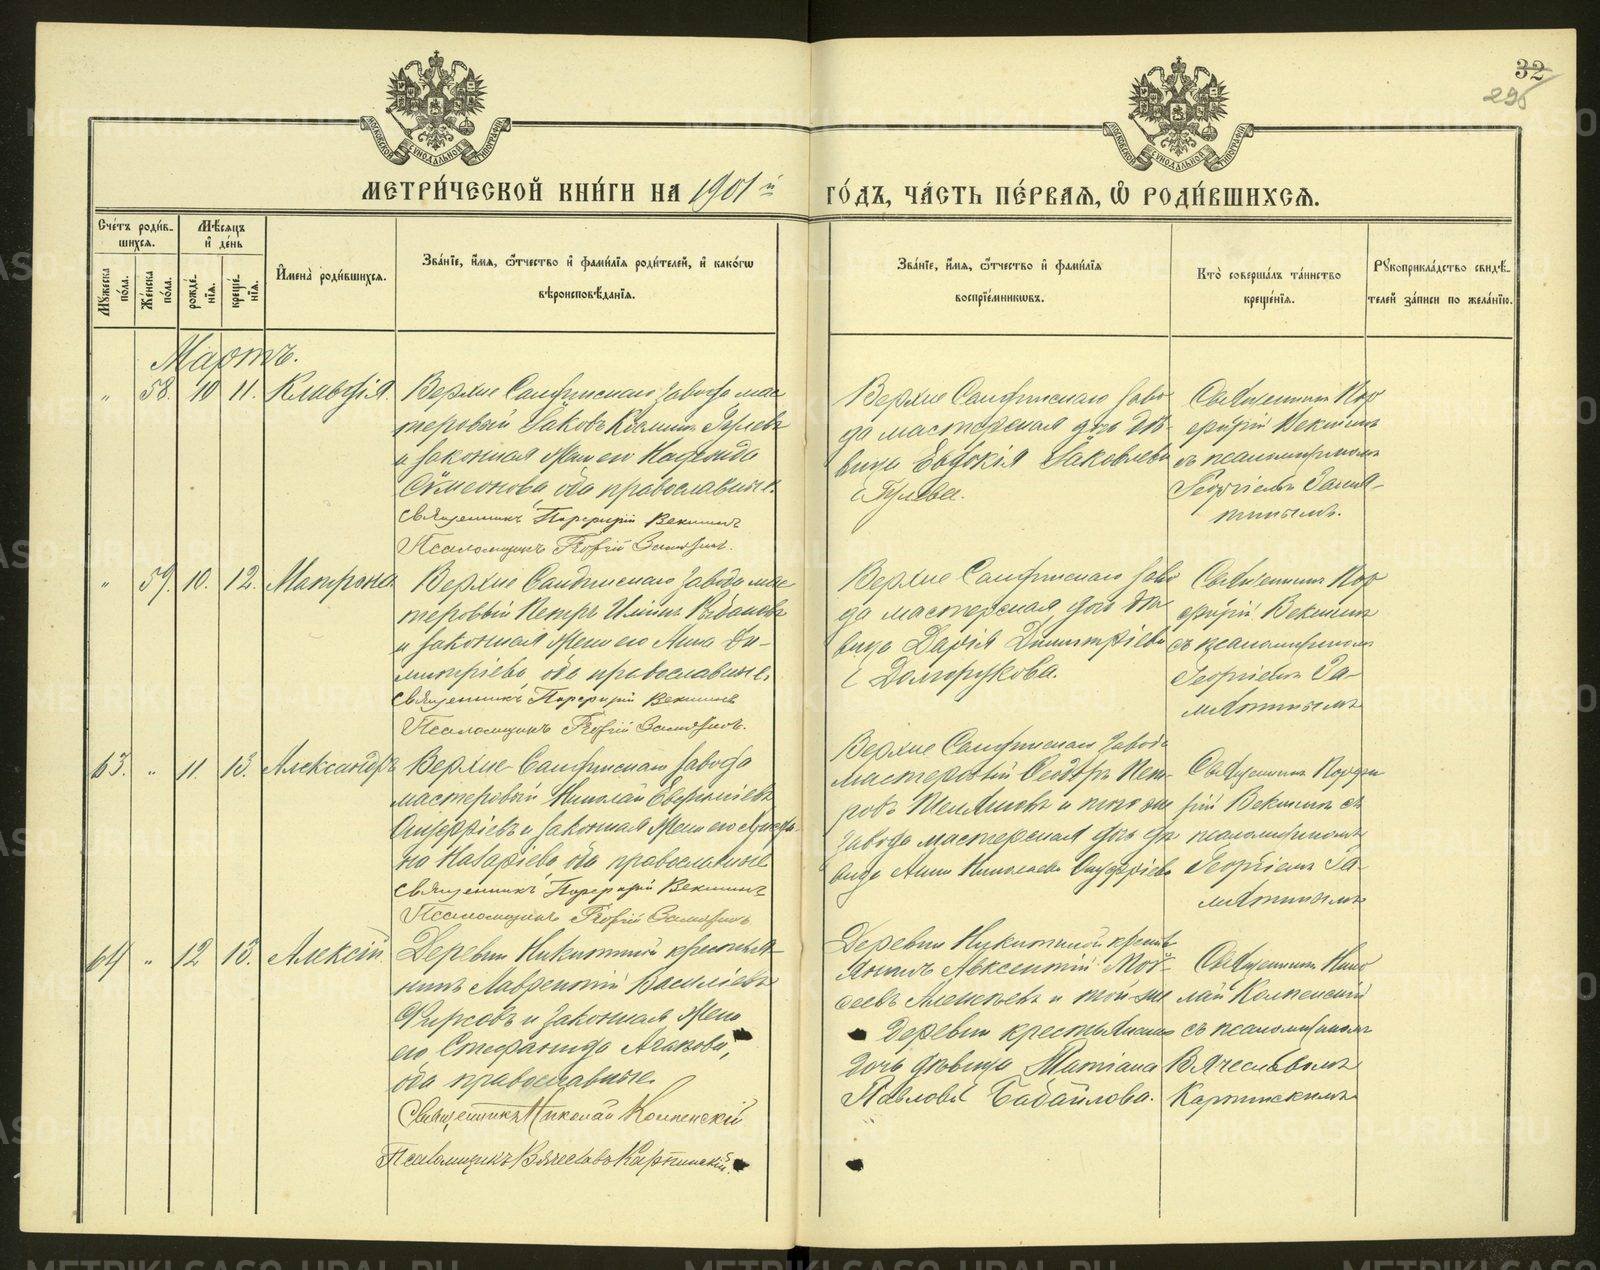 32
295
МОСКОВСКОЙ СѴНОДАЛЬНОЙ ТИПОГРАФІИ
МОСКОВСКОЙ СѴНОДАЛЬНОЙ ТИПОГРАФІИ
МЕТРИ́ЧЕСКОЙ КНИ́ГИ НА 1901 й ГО́ДЪ, ЧА́СТЬ ПЕ́РВАЯ, Ѡ РОДИ́ВШИХСЯ.
Сче́тъ роди́в-
шихся.
Мꙋ́жеска по́ла.
Же́нска по́ла.
Мѣ́сяцъ
и҆ де́нь
рожде́-
нїя.
креще́-
нїя.
И҆мена̀ роди́вшихся.
Зва́нїе, и҆́мя, ѻ҆́тчество и҆ фами́лїя роди́телей, и҆ како́гѡ
вѣроисповѣ́данїя.
Зва́нїе, и҆́мя, ѻ҆́тчество и҆ фами́лїя
воспрїе́мникѡвъ.
Кто̀ соверша́лъ та́инство
креще́нїя.
Рꙋкоприкла́дство свидѣ́-
телей за́писи по жела́нїю.
Мартъ.
" 58. 10 11. Клавдія
Верхне Салдинскаго завода мас-
теровый Іаковъ Гуляевъ
и законная жена его Надежда
Сѵмеонова, оба православные.
Священникъ Порфирій Векшинъ
Псаломщикъ Георгій Замятинъ.
Верхне Салдинскаго заво-
да мастерская дочь дѣ-
вица Евдокія Іаковлева
Гуляева.
Священникъ Пор
фирій Векшинъ
съ псаломщикомъ
Георгіемъ Замя-
тинымъ.
" 59. 10. 12. Матрона
Верхне Салдинскаго завода мас
теровый Петръ
и законная жена его Анна Ди-
митріева, оба православные.
Священникъ Порфирій Векшинъ
Псаломщикъ Георгій Замятинъ.
Верхне Салдинскаго заво
да мастерская дочь дѣ-
вица Дарія Димитріева
Долгорукова.
Священникъ Пор
фирій Векшинъ
съ псаломщикомъ
Георгіемъ За-
мятинымъ
63. " 11. 13. Александръ
Верхне-Салдинскаго завода
мастеровый Николай
Онуфріевъ и законная жена его
Назаріева оба православные
Священникъ Порфирій Векшинъ
Псаломщикъ Георгій Замятинъ
Верхне Салдинскаго завода
мастеровый Ѳеодоръ Пет-
ровъ и того же
завода мастерская дочь дѣ
вица Анна Николаева Онуфріева
Священникъ Порфи
рій Векшинъ съ
псаломщикомъ
Георгіемъ За-
мятинымъ
64 " 12 13. Алексій.
Деревни Никитиной крестья-
нинъ Лаврентій Василіевъ
Фирсовъ и законная жена
его Стефанида
оба православные.
Священникъ Николай Колпенскій
Псаломщикъ Вячеславъ Карпинскій.
Деревни Никитиной кресть
янинъ Авксентій Мои-
сеевъ и той же
деревни крестьянская
дочь дѣвица Татіана
Павлова Бабайлова.
Священникъ Нико
лай Колпенскій
съ псаломщикомъ
Вячеславомъ
Карпинскимъ
METRIKI.GASO-URAL.RU